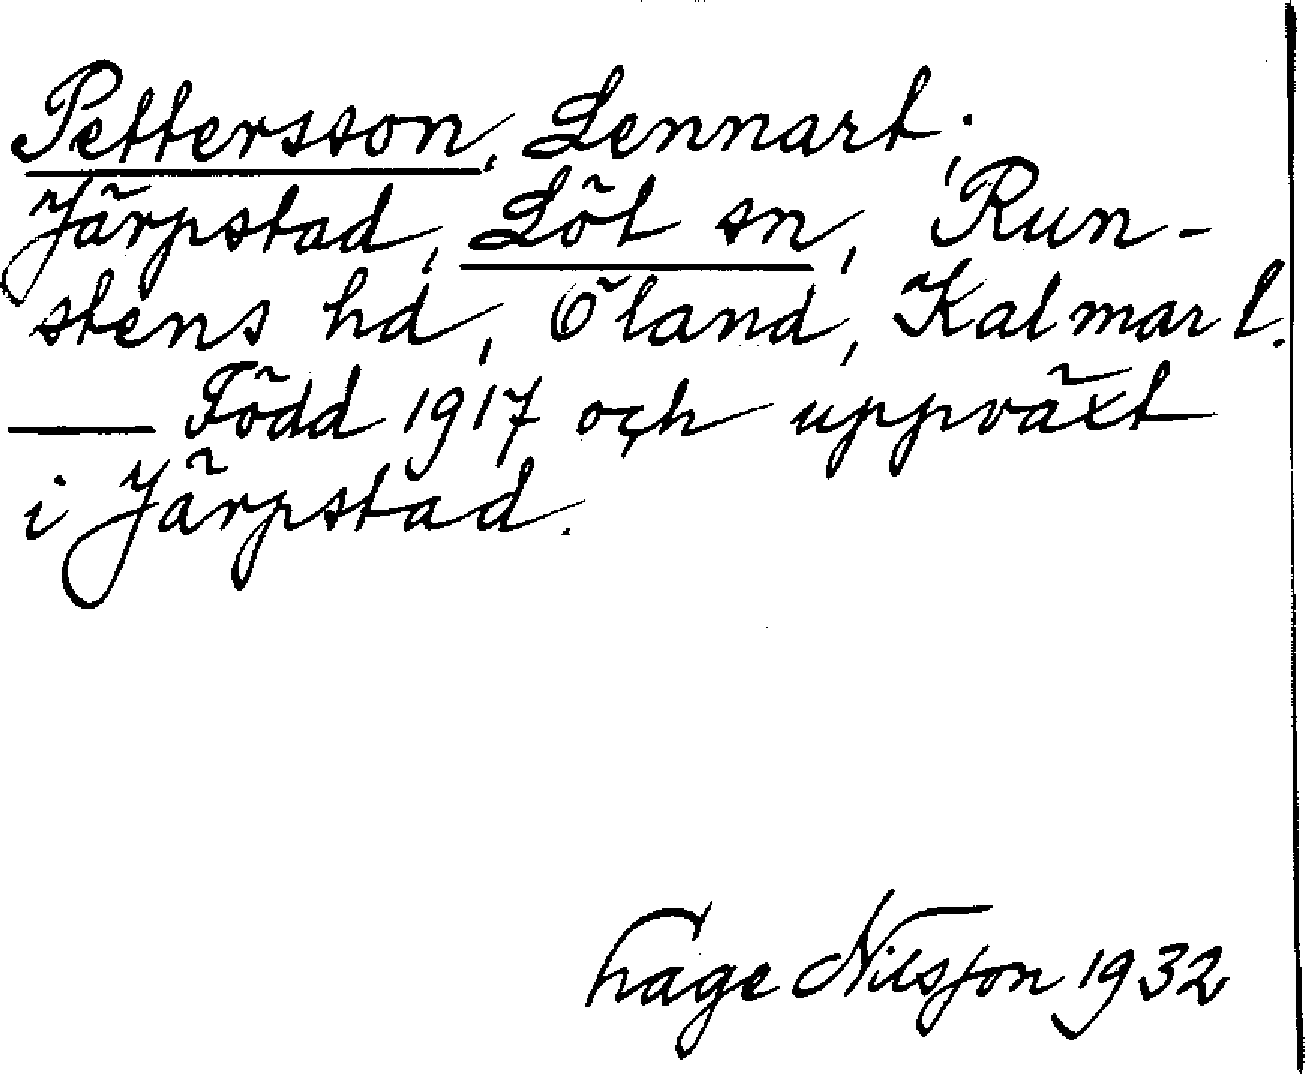 Pettersson, Lennart;
Järpstad, Löt sn, Run-
stens hd, Öland, Kalmar l.
— Född 1917 och uppväxt
i Järpstad.
Hage Nilsson 1932